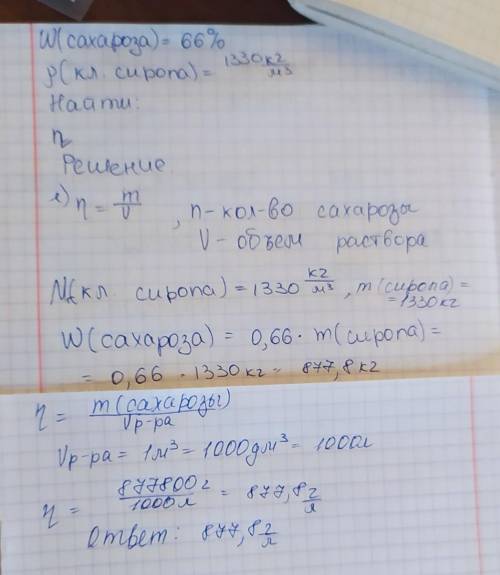 W(сахароза) = 66%
ρ(кл. сиропа) = 1330 кг/м³
Найти:
η
Решение
1) η = m/V , n - кол-во сахарозы
V - объем раствора
(кл. сиропа) = 1330 кг/м³ , m(сиропа) =
= 1330 кг
W(сахароза) = 0,66 · m(сиропа) =
= 0,66 · 1330 кг = 877,8 кг
η = m(сахарозы)/Vр-ра
Vр-ра = 1м³ = 1000дм³ = 1000л
η = 877800г/1000л = 877,8 г/л
Ответ: 877,8 г/л